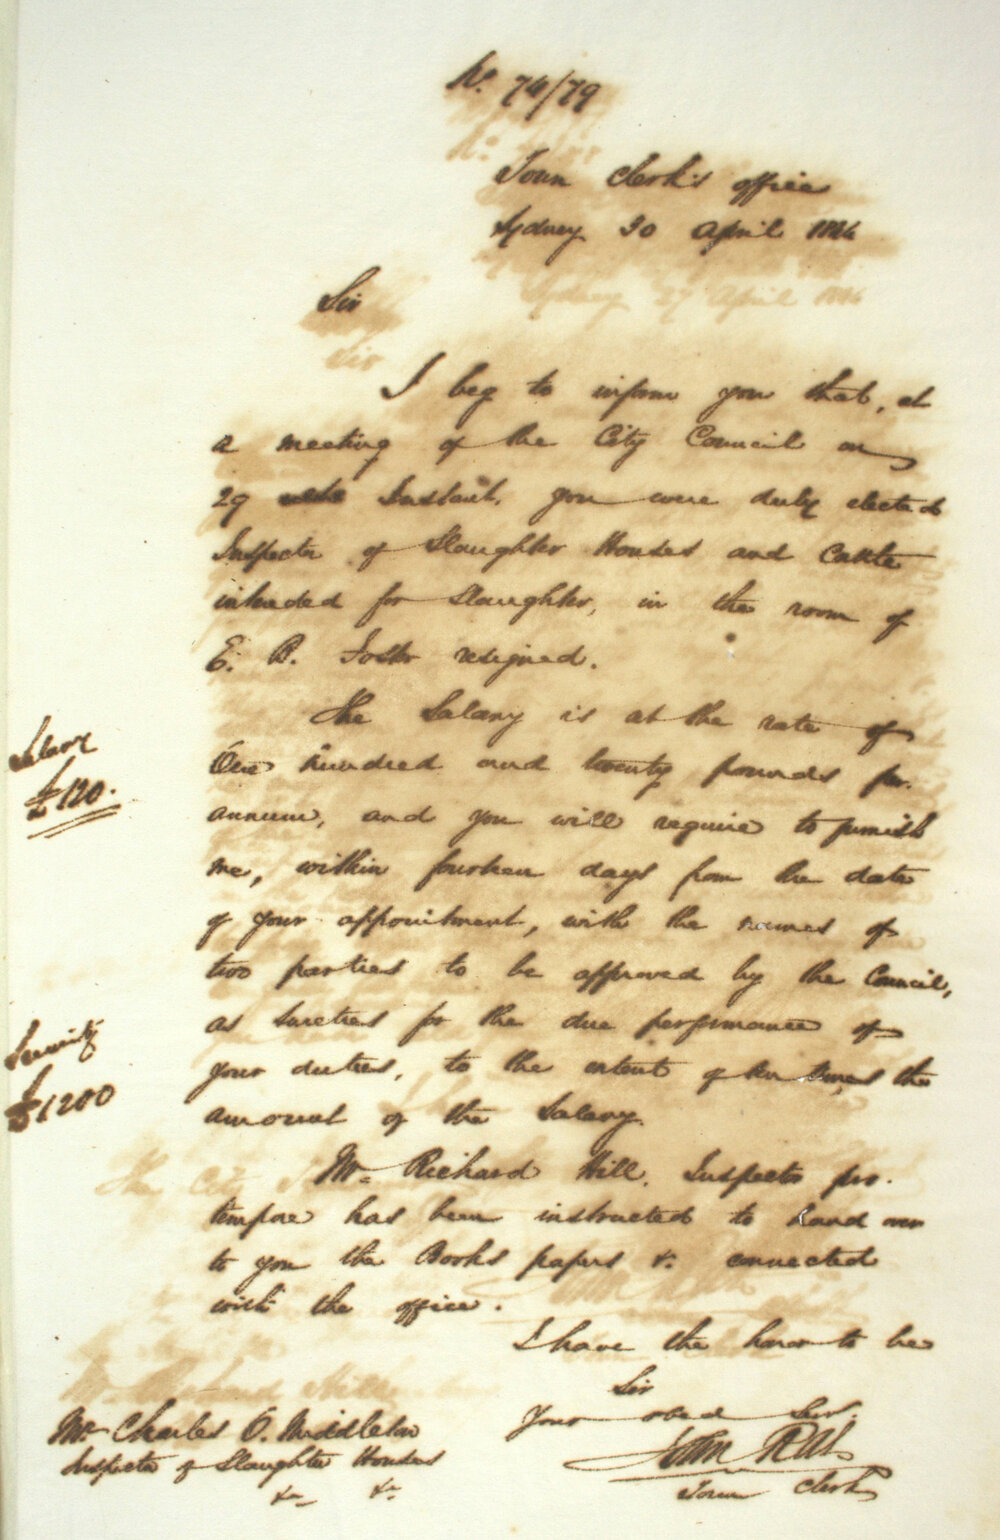 No. 74/79
Town Clerk's office
Sydney 30 April 1846
Sir
I beg to inform you that, at
a meeting of the City Council on
29 Instant, you were duly elected
Inspector of Slaughter Houses and Cattle
intended for Slaughter, in the room of
E. B. Foster resigned.
The Salary is at the rate of
One hundred and twenty pounds per.
annum, and you will require to furnish
me, within fourteen days from the date
of your appointment, with the names of
two parties to be approved by the Council,
as Sureties for the due performance of
your duties, to the extent of ten times the
amount of the Salary.
Mr. Richard Hill, Inspector pro.
tempore has been instructed to hand over
to you the Books papers &c. connected
with the office.
Salary
£120.
Security
£1200
I have the honor to be
Sir
Your obed Serv.
John Rae
Town Clerk
Mr Charles O. Middleton
Inspector of Slaughter Houses
&c &c